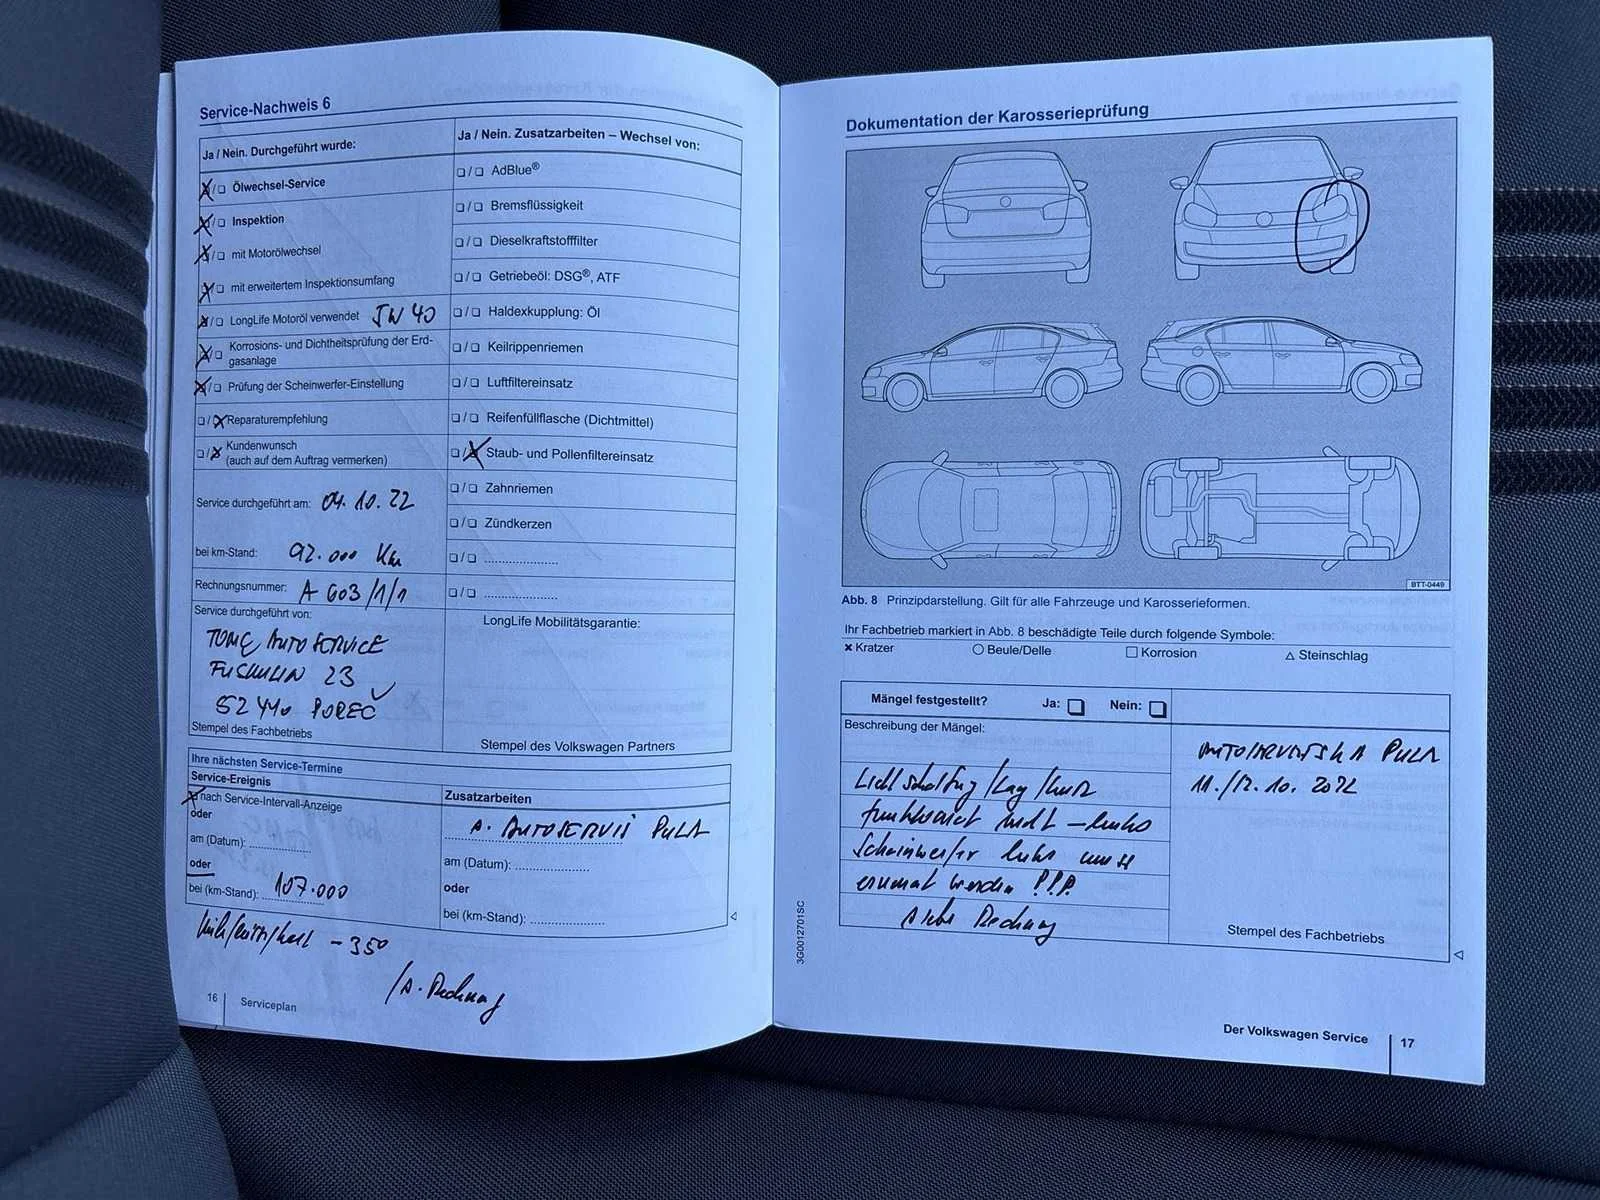 Service-Nachweis 6
Ja / Nein. Durchgeführt wurde:
☒/☐ Ölwechsel-Service
☒/☐ Inspektion
☒/☐ mit Motorölwechsel
☒/☐ mit erweitertem Inspektionsumfang
☒/☐ LongLife Motoröl verwendet 5W 40
☒/☐ Korrosions- und Dichtheitsprüfung der Erd-
gasanlage
☒/☐ Prüfung der Scheinwerfer-Einstellung
☐/☒ Reparaturempfehlung
☐/☒ Kundenwunsch
(auch auf dem Auftrag vermerken)
Service durchgeführt am: 04.10.22
bei km-Stand: 92.000 Km
Rechnungsnummer: A 603/1/1
Service durchgeführt von:
AUTOSERVICE
23
52440 POREČ
Stempel des Fachbetriebs
Ja / Nein. Zusatzarbeiten – Wechsel von:
☐/☐ AdBlue®
☐/☐ Bremsflüssigkeit
☐/☐ Dieselkraftstofffilter
☐/☐ Getriebeöl: DSG®, ATF
☐/☐ Haldexkupplung: Öl
☐/☐ Keilrippenriemen
☐/☐ Luftfiltereinsatz
☐/☐ Reifenfüllflasche (Dichtmittel)
☐/☒ Staub- und Pollenfiltereinsatz
☐/☐ Zahnriemen
☐/☐ Zündkerzen
☐/☐ ....................
☐/☐ ....................
LongLife Mobilitätsgarantie:
Stempel des Volkswagen Partners
Ihre nächsten Service-Termine
Service-Ereignis
☒ nach Service-Intervall-Anzeige
oder
am (Datum): ................
oder
bei (km-Stand): 107.000
Zusatzarbeiten
AUTOSERVIS PULA
am (Datum): ....................
oder
bei (km-Stand): ....................
- 350
Rechnung
16 Serviceplan
Dokumentation der Karosserieprüfung
BTT-0449
Abb. 8 Prinzipdarstellung. Gilt für alle Fahrzeuge und Karosserieformen.
Ihr Fachbetrieb markiert in Abb. 8 beschädigte Teile durch folgende Symbole:
× Kratzer ○ Beule/Delle □ Korrosion △ Steinschlag
Mängel festgestellt? Ja: ☐ Nein: ☐
Beschreibung der Mängel:
Lichtschaltung/Lang/kurz
funktioniert nicht – links
Scheinwerfer links muss
erneuert werden !!!
siehe Rechnung
PULA
11./12.10.2022
Stempel des Fachbetriebs
3G0012701SC
Der Volkswagen Service 17